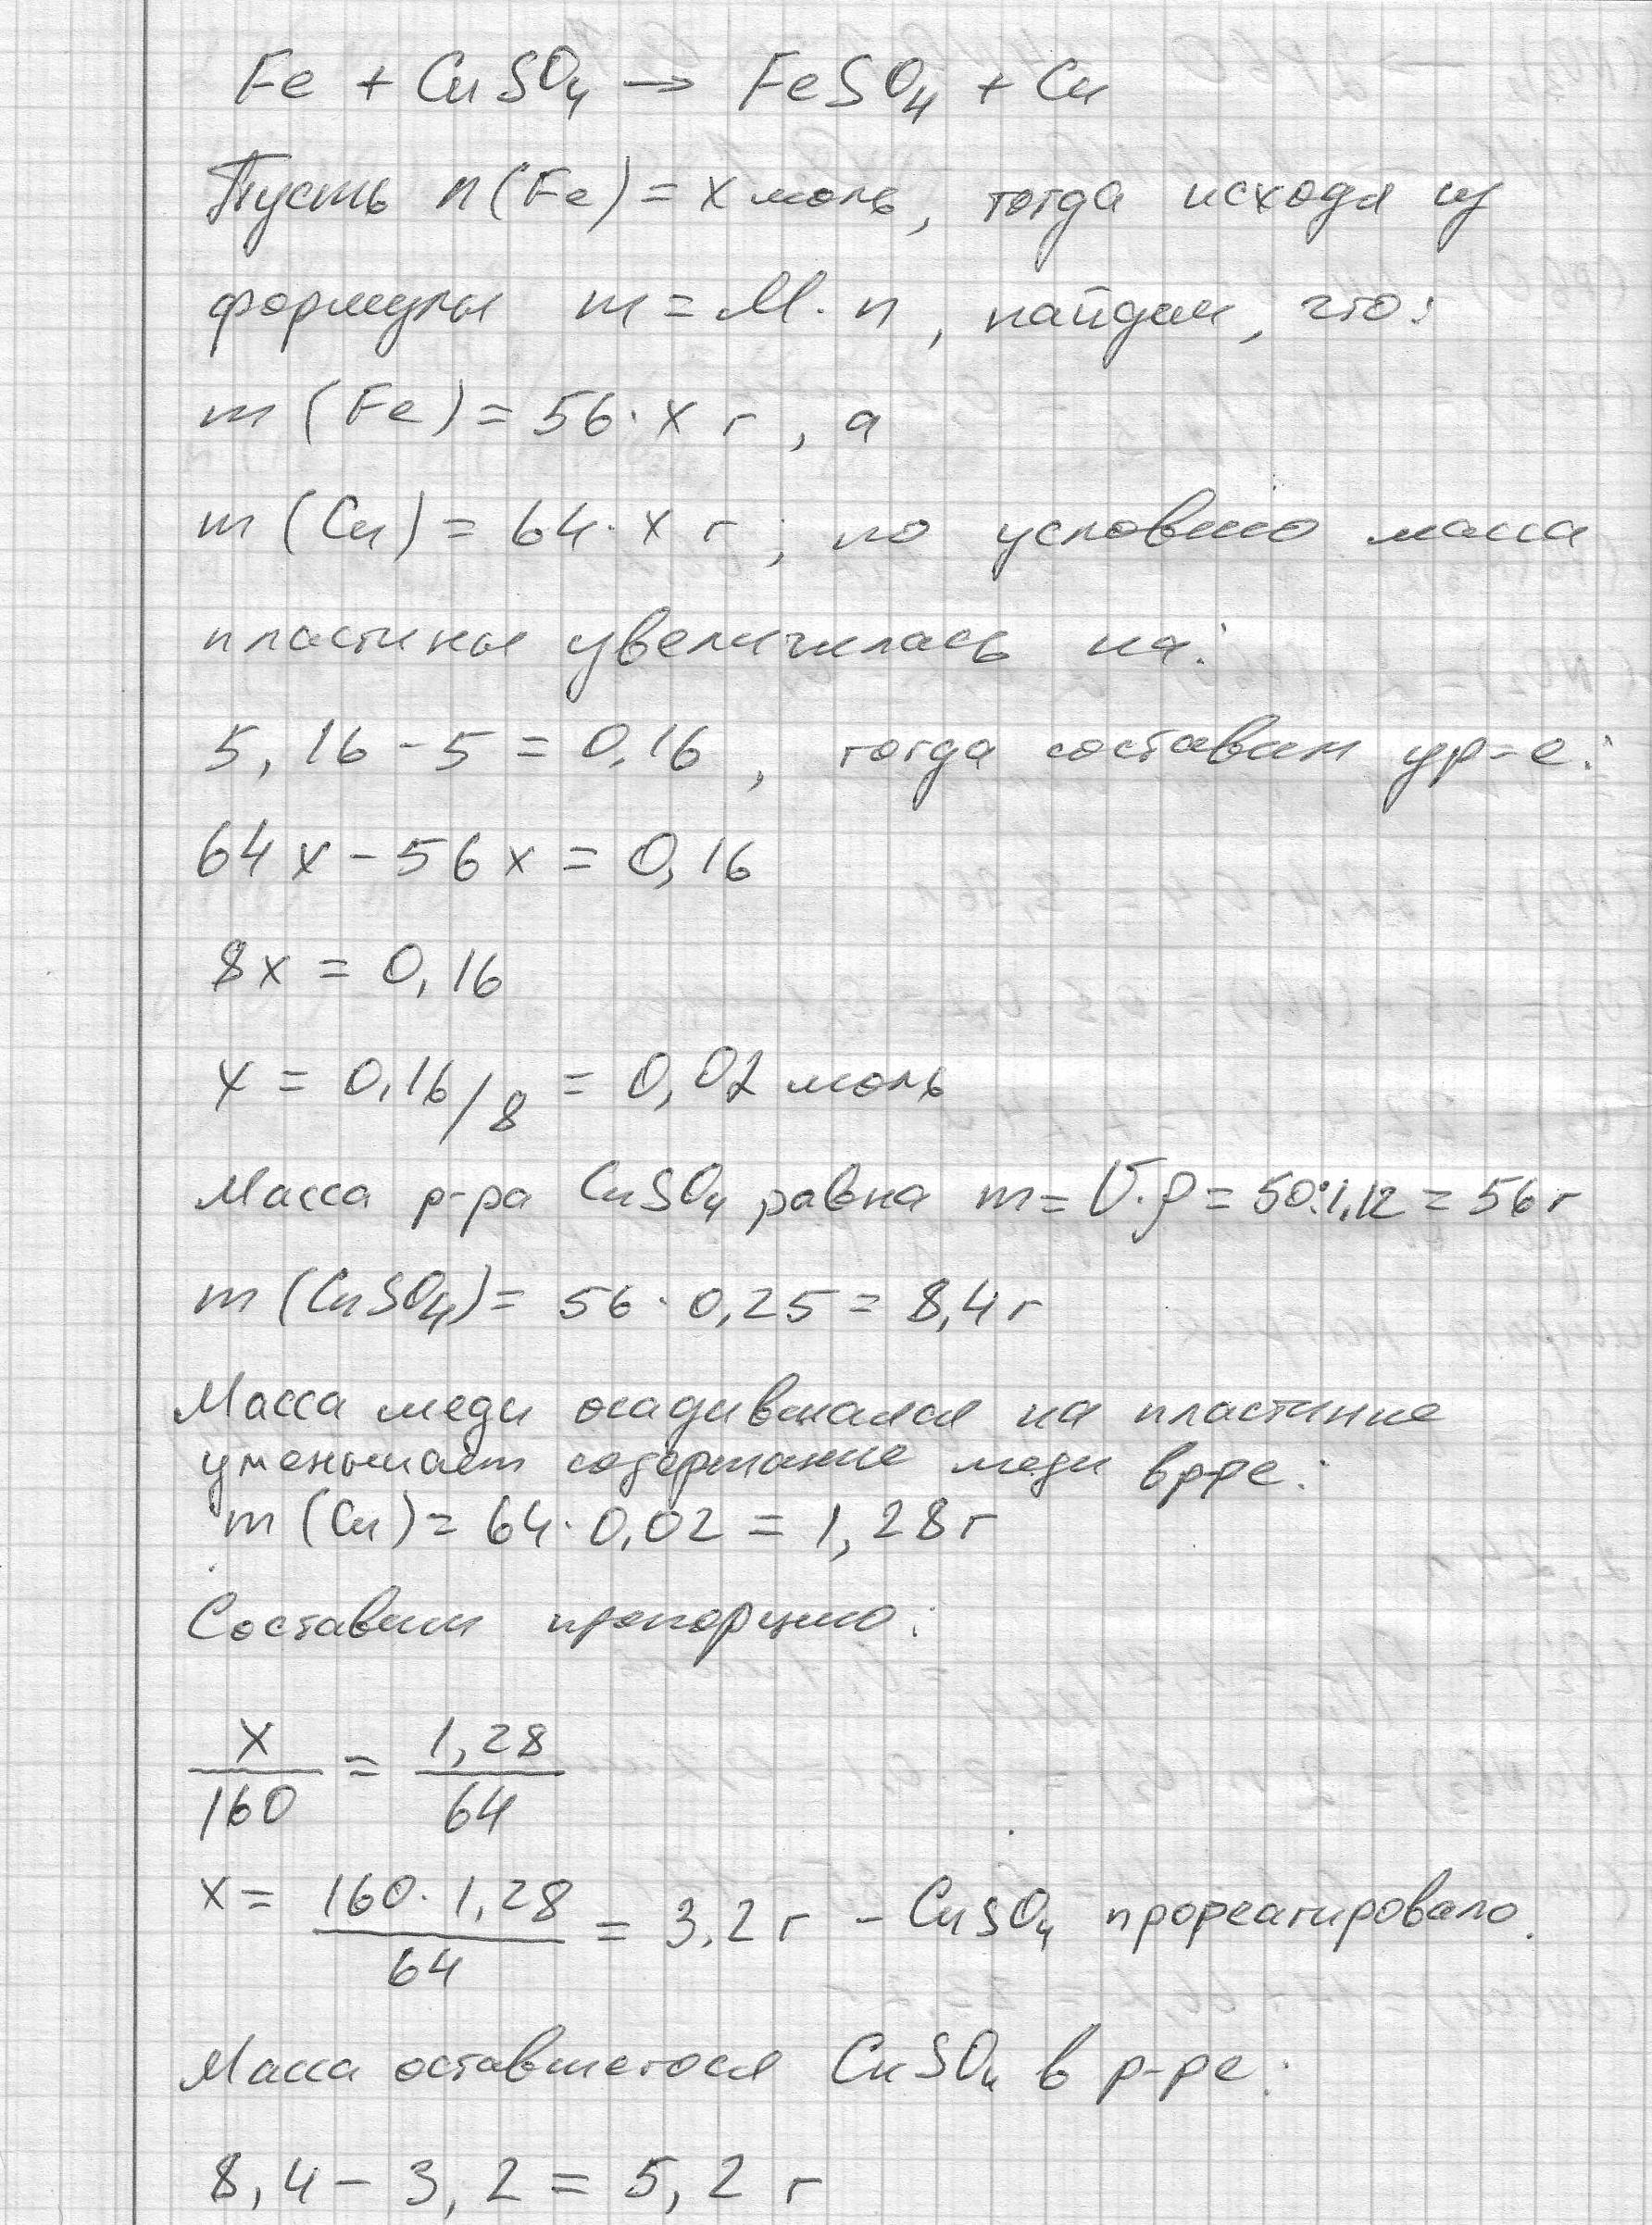 Fe + CuSO₄ → FeSO₄ + Cu
Пусть n(Fe) = x моль, тогда исходя из
формулы m = M · n, найдем, что:
m (Fe) = 56 · x г, а
m (Cu) = 64 · x г; по условию масса
пластины увеличилась на:
5,16 - 5 = 0,16, тогда составим ур-е:
64x - 56x = 0,16
8x = 0,16
x = 0,16/8 = 0,02 моль
Масса р-ра CuSO₄ равна m = V·ρ = 50·1,12 = 56 г
m (CuSO₄) = 56 · 0,25 = 8,4 г
Масса меди осадившаяся на пластинке
уменьшает содержание меди в р-ре:
m (Cu) = 64 · 0,02 = 1,28 г
Составим пропорцию:
x/160 = 1,28/64
x = 160 · 1,28/64 = 3,2 г - CuSO₄ прореагировало.
Масса оставшегося CuSO₄ в р-ре:
8,4 - 3,2 = 5,2 г